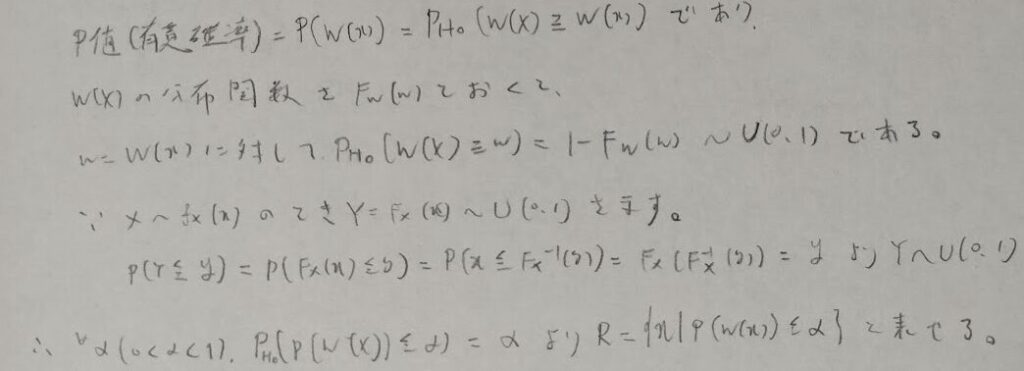 P値(有意確率) = P(W(x)) = P_{H₀}(W(X) ≧ W(x)) であり、
W(X)の分布関数を F_W(w) とおくと、
w = W(x) に対して P_{H₀}(W(X) ≧ w) = 1 - F_W(w) ~ U(0,1) である。
∵ X ~ f_X(x) のとき Y = F_X(x) ~ U(0,1) を示す。
P(Y ≦ y) = P(F_X(x) ≦ y) = P(x ≦ F_X⁻¹(y)) = F_X(F_X⁻¹(y)) = y より Y ~ U(0,1)
∴ ∀α(0<α<1), P_{H₀}(P(W(X)) ≦ α) = α より R = {x | P(W(x)) ≦ α} と表せる。